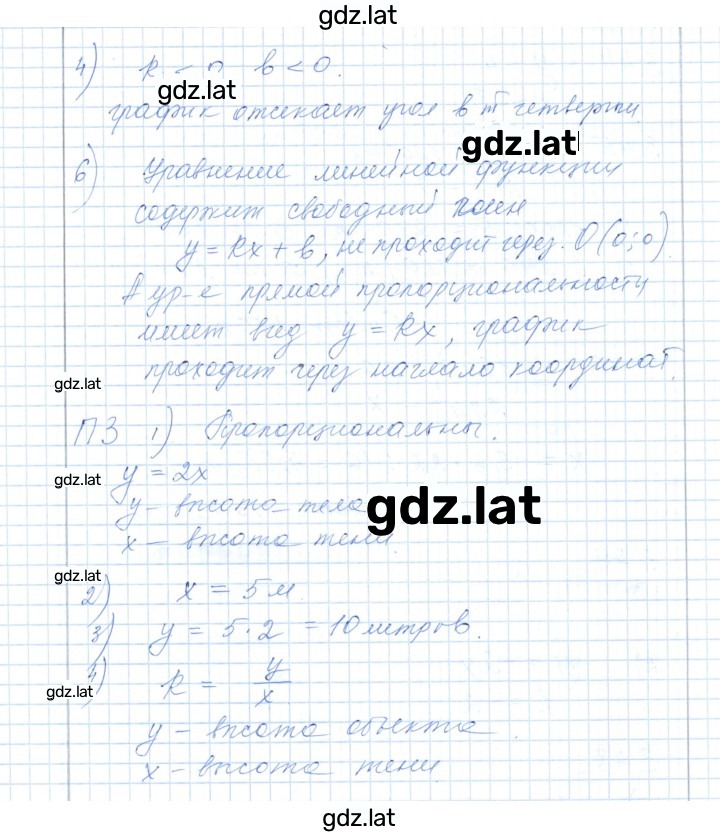 gdz.lat
4) k < 0 b < 0.
gdz.lat
график отсекает угол в III четверти
gdz.lat
6) Уравнение линейной функции
содержит свободный член
y = kx + b, не проходит через O(0;0)
А ур-е прямой пропорциональности
имеет вид y = kx, график
проходит через начало координат.
gdz.lat
ПЗ 1) Пропорциональны.
y = 2x
gdz.lat
y - высота тела
gdz.lat
x - высота тени.
gdz.lat
2) x = 5 м
3) y = 5·2 = 10 метров.
4) k = y/x
gdz.lat
y - высота объекта
x - высота тени
gdz.lat